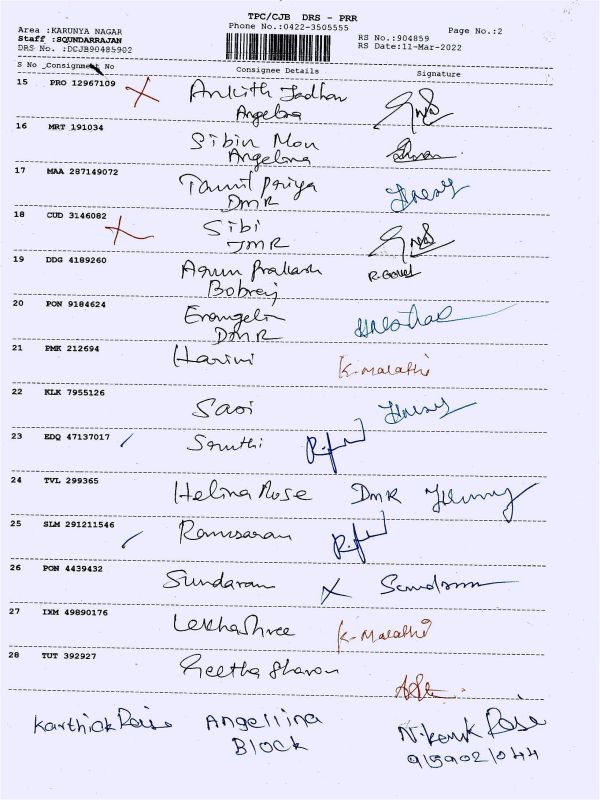 TPC/CJB DRS - PRR
Area :KARUNYA NAGAR
Phone No.:0422-3505555
Page No.:2
Staff :SOUNDARRAJAN
RS No.:904859
DRS No. :DCJB90485902
RS Date:11-Mar-2022
S No Consignment No Consignee Details Signature
15 PRO 12967109 X Ankith Jadhav
Angelina
16 MRT 191034 Sibin Mon
Angelina
17 MAA 287149072 Tamil Priya
DMR
18 CUD 3146082 X Sibi
JMR
19 DDG 4189260 Arun Prakash
Bobraj
20 PON 9184624 Evangelin
DMR
21 PMK 212694 Harini K. Malathi
22 KLK 7955126
23 EDQ 47137017 Sruthi
24 TVL 299365 Helina Rose DMR
25 SLM 291211546 Ramsaran
26 PON 4439432 Sundaram X
27 IXM 49890176 Lekhashree K. Malathi
28 TUT 392927 Geetha Sharon
Angellina
BLOCK